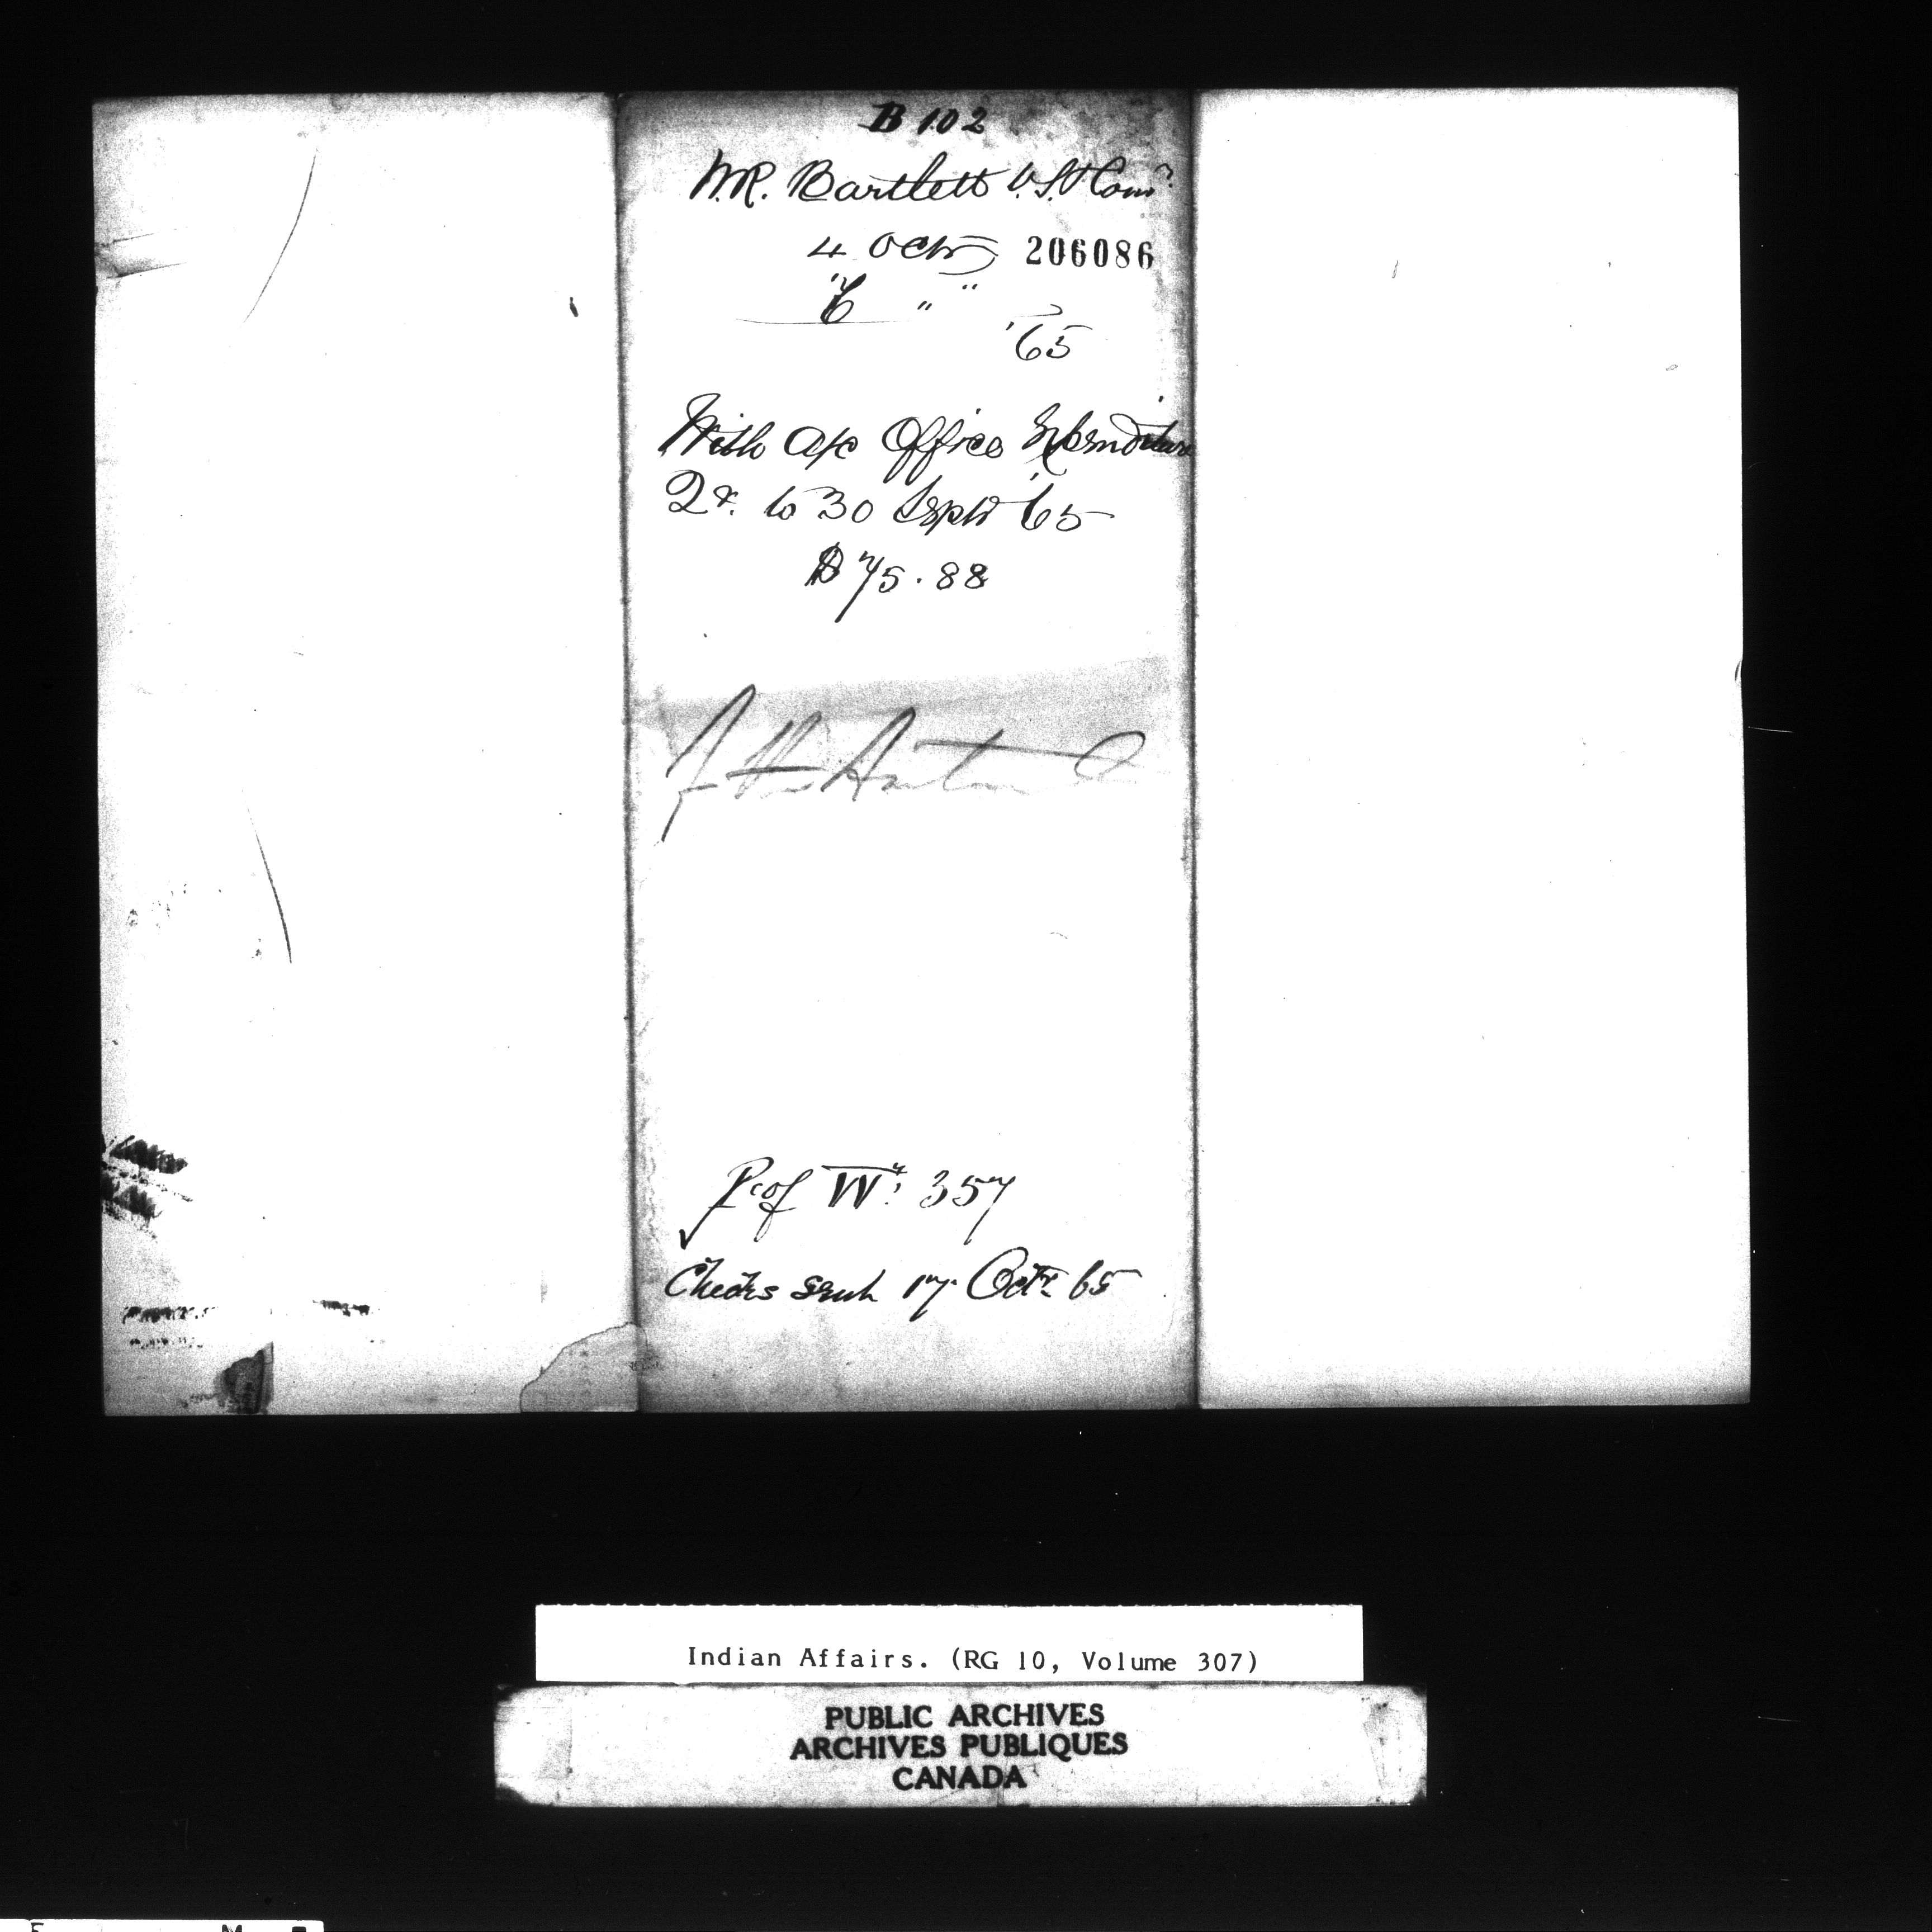 B 102
W.R. Bartlett V.S.I Comr
4 Octr 206086
6 " "
'65
With a/c Office Expenditure
Qr. to 30 Septr '65
$75.88
357
Checks sent 17 Octr 65
Indian Affairs. (RG 10, Volume 307)
PUBLIC ARCHIVES
ARCHIVES PUBLIQUES
CANADA